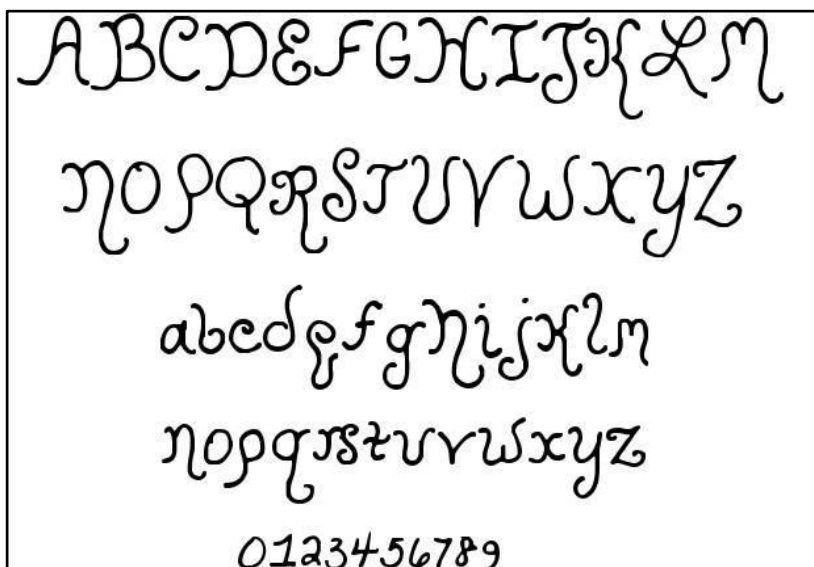 ABCDEFGHIJKLM
NOPQRSTUVWXYZ
abcdefghijklm
nopqrstuvwxyz
0123456789